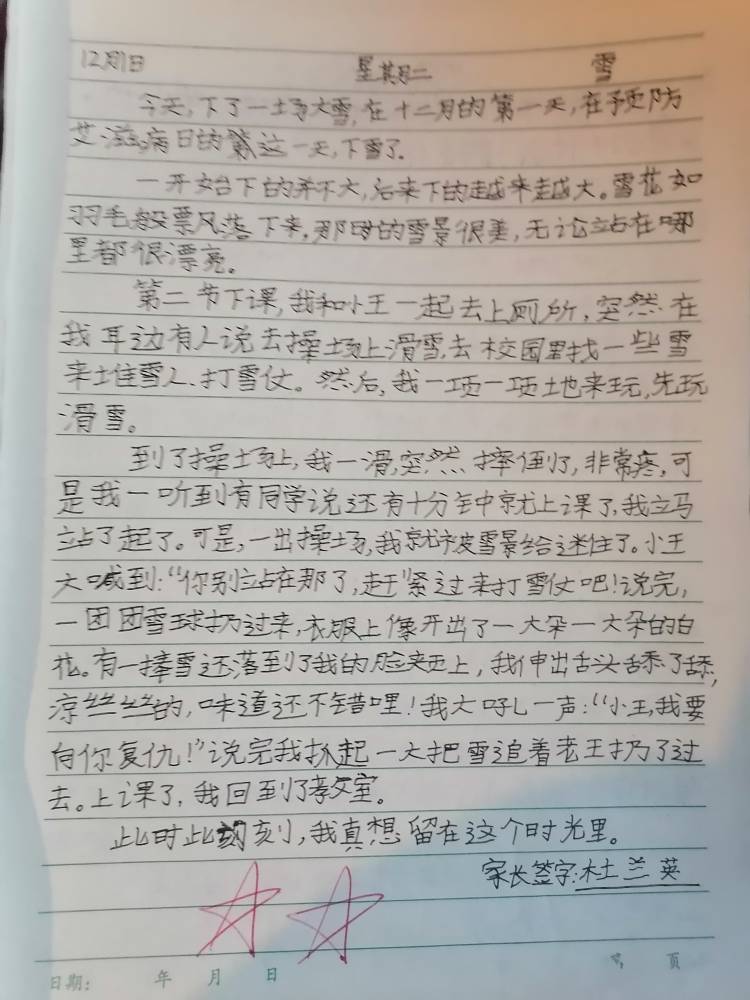 12月1日 星期二 雪
今天,下了一场大雪,在十二月的第一天,在预防
艾滋病日的第这一天,下雪了。
一开始下的并不大,后来下的越来越大。雪花如
羽毛般票风落下来,那时的雪景很美,无论站在哪
里都很漂亮。
第二节下课,我和小王一起去上厕所,突然在
我耳边有人说去操场上滑雪,去校园里找一些雪
来堆雪人、打雪仗。然后,我一项一项地来玩,先玩
滑雪。
到了操场上,我一滑,突然摔倒了,非常疼,可
是我一听到有同学说还有十分钟就上课了,我立马
站了起了。可是,一出操场,我就被雪景给迷住了。小王
大喊到:“你别站在那了,赶紧过来打雪仗吧!说完,
一团团雪球扔过来,衣服上像开出了一大朵一大朵的白
花。有一捧雪还落到了我的脸夹上,我伸出舌头舔了舔,
凉丝丝的,味道还不错哩!我大吼一声:“小王,我要
向你复仇!”说完我抓起一大把雪追着老王扔了过
去。上课了,我回到了教室。
此时此刻,我真想留在这个时光里。
家长签字:杜兰英
日期: 年 月 日 页